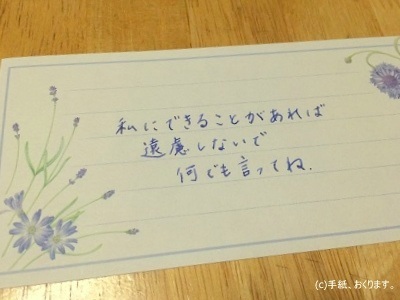 私にできることがあれば
遠慮しないで
何でも言ってね.
(c)手紙、おくります。